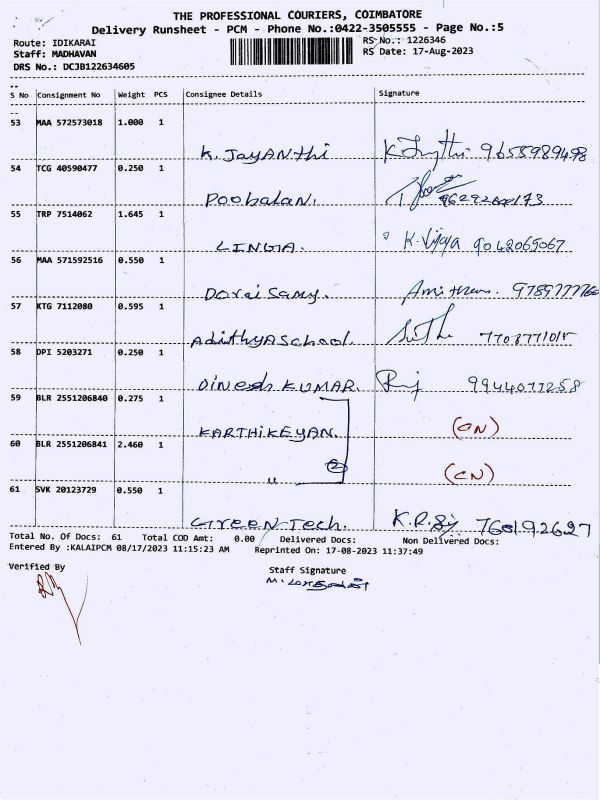 THE PROFESSIONAL COURIERS, COIMBATORE
Delivery Runsheet - PCM - Phone No.:0422-3505555 - Page No.:5
Route: IDIKARAI RS No.: 1226346
Staff: MADHAVAN RS Date: 17-Aug-2023
DRS No.: DCJB122634605
S No Consignment No Weight PCS Consignee Details Signature
53 MAA 572573018 1.000 1
K. JayANthi 9655989498
54 TCG 40590477 0.250 1
Poobalan.
55 TRP 7514062 1.645 1
LINGA. K. Vijaya 9042065067
56 MAA 571592516 0.550 1
Doraisamy.
57 KTG 7112080 0.595 1
AdithyA school.
58 DPI 5203271 0.250 1
Dinesh KUMAR. 9944077258
59 BLR 2551206840 0.275 1
KARTHIKEYAN. (ON)
60 BLR 2551206841 2.460 1
" (2) (ON)
61 SVK 20123729 0.550 1
Green Tech.
Total No. Of Docs: 61 Total COD Amt: 0.00 Delivered Docs: Non Delivered Docs:
Entered By :KALAIPCM 08/17/2023 11:15:23 AM Reprinted On: 17-08-2023 11:37:49
Verified By Staff Signature